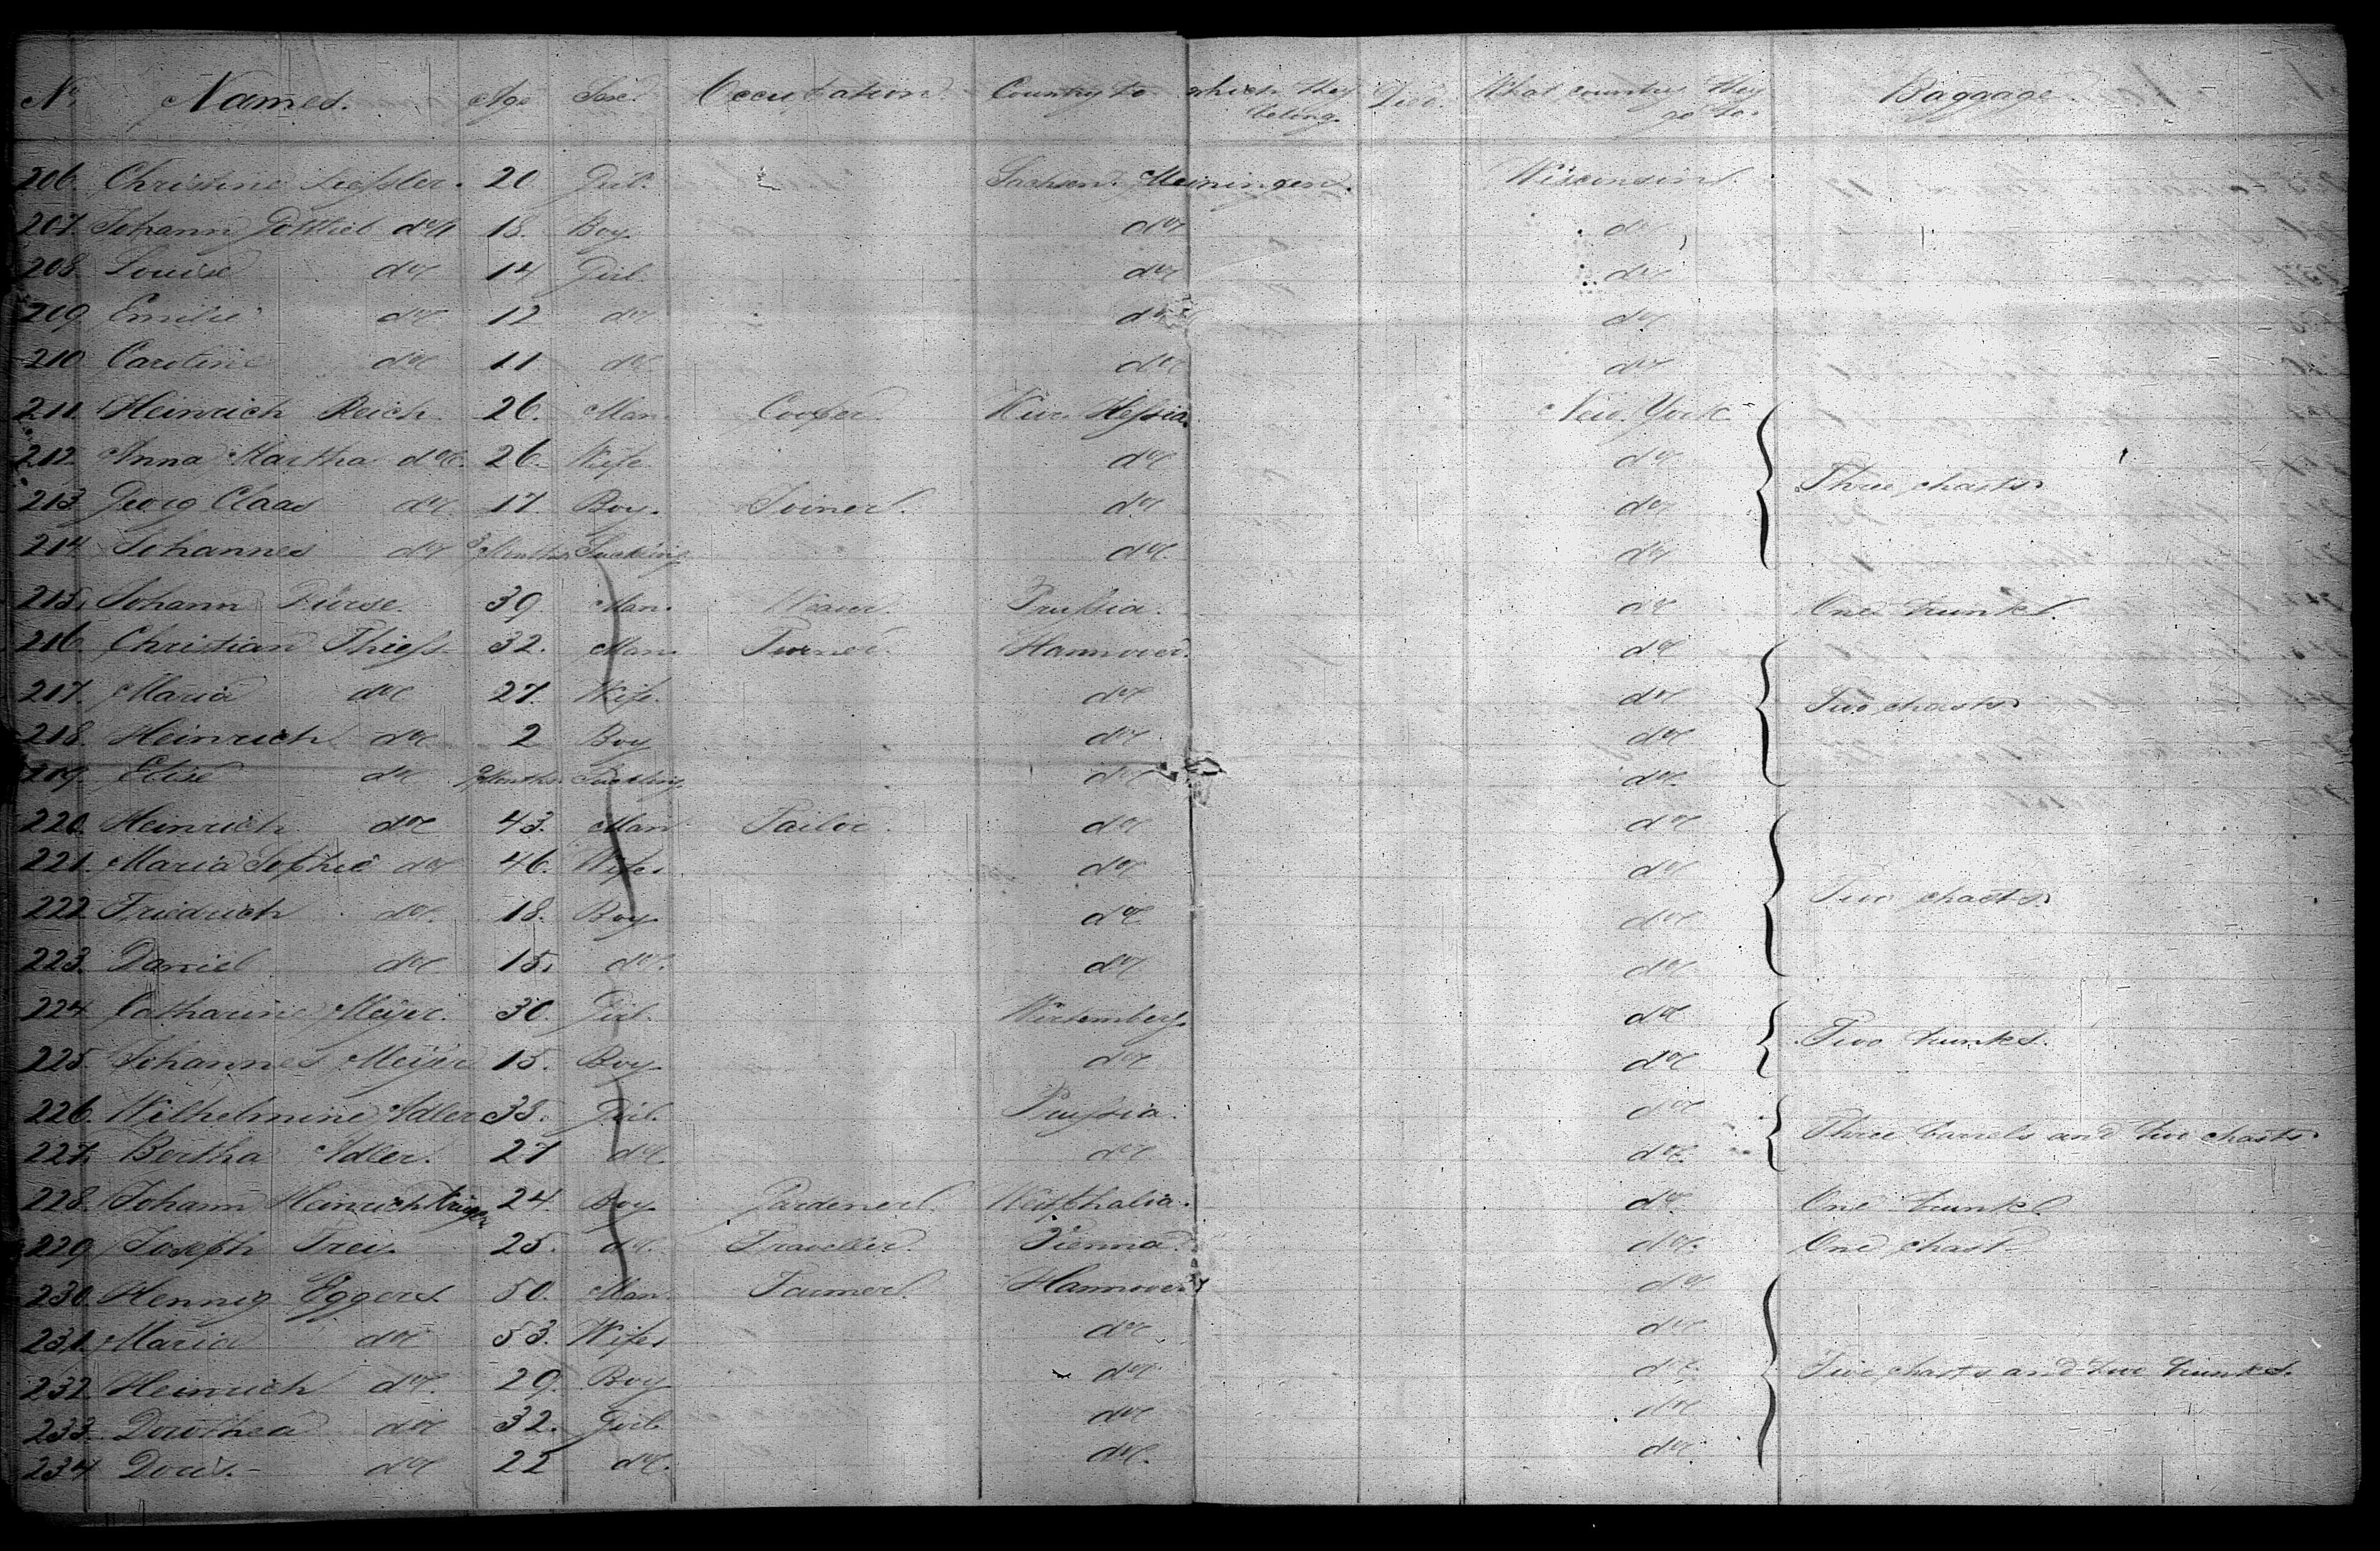 No. Names. Age Sex. Occupation. Country to which they belong. Died. What country they go to. Baggage.
206. Christine 20 Girl. Sachsen Meiningen. Wisconsin.
207. Johann Gottlieb do 18. Boy. do do
208. Louise do 14 Girl. do do
209 Emilie do 12 do do do
210. Caroline do 11 do do do
211. Heinrich Reich 26. Man. Cooper. Kur Hessia. New York
212. Anna Martha do 26. Wife do do
213 Georg Claas do 17. Boy. Joiner. do do Three chasts
214 Johannes do Months Suckling do do
215. Johann 39 Man. Weaver. Prussia. do One trunk.
216 Christian Thiess 32. Man. Turner. Hannover. do
217. Maria do 27. Wife. do do Two chasts
218. Heinrich do 2 Boy do do
219. Elise do Months Suckling do do
220. Heinrich do 43. Man Tailor. do do
221. Maria Sophie do 46. Wife do do
222 Friedrich do 18. Boy. do do Two chasts
223. Daniel do 15. do do do
224 Catharine Meyer. 30. Girl. Wirtemberg. do
225. Johannes Meyer 15. Boy. do do Two trunks.
226. Wilhelmine Adler 33. Girl. Prussia. do
227. Bertha Adler. 27 do do do Three barrels and two chasts
228. Johann Heinrich Krüger 24. Boy Gardener. Westphalia. do One trunk.
229 Joseph Frei. 25. do Traveller. Vienna. do One chast
230. Hennig Eggers 50. Man. Farmer. Hannover do
231. Maria do 53. Wife do do
232. Heinrich do 29. Boy do do Two chasts and two trunks.
233. Dorothea do 32. Girl do do
234 Doris. do 22 do do do